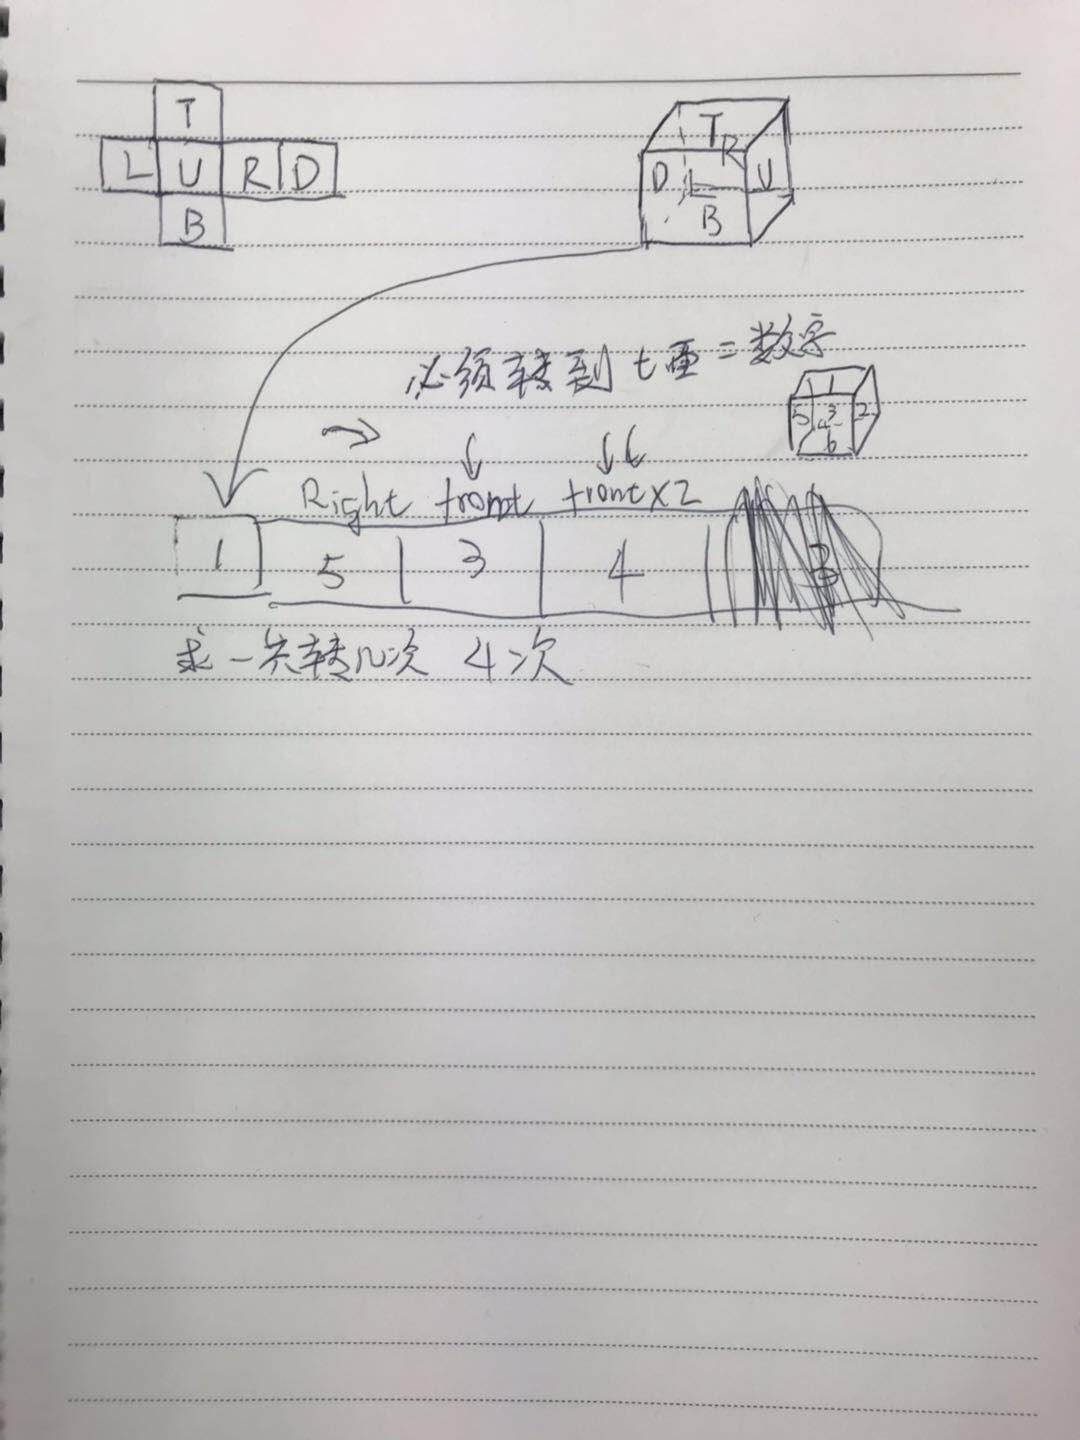 T
L U R D
B
T
R
D L U
B
必须转到 t面 = 数字
1
5 3 2
4
6
Right front front×2
1 5 3 4
求一共转几次 4次